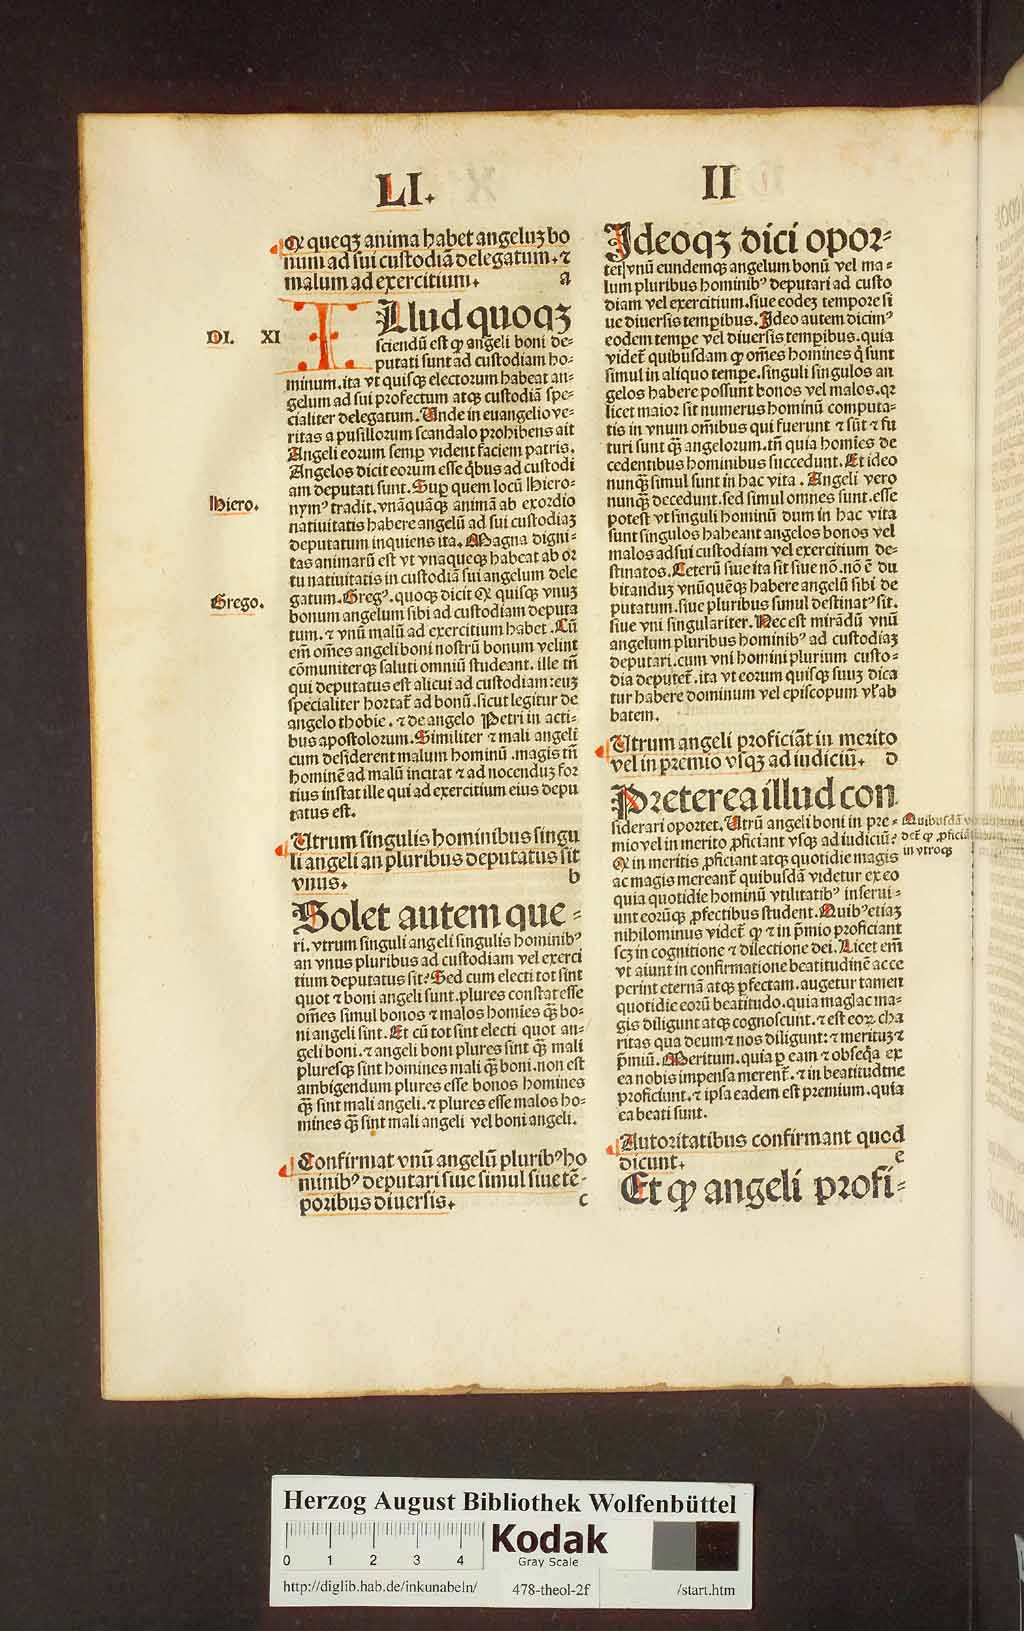 LI.
II
Qꝙ queqꝫ anima habet angeluꝫ bo
num ad sui custodiã delegatum. ⁊
malum ad exercitium. a
DI. XI
Illud quoqꝫ
sciendũ est ꝙ angeli boni de⸗
putati sunt ad custodiam ho⸗
minum. ita vt quisqꝫ electorum habeat an⸗
gelum ad sui profectum atqꝫ custodiã spe⸗
cialiter delegatum. Unde in euangelio ve⸗
ritas a pusillorum scandalo prohibens ait
Angeli eorum semꝑ vident faciem patris.
Angelos dicit eorum esse q̃bus ad custodi
am deputati sunt. Suꝑ quem locũ Hiero⸗
Hiero.
nymꝰ tradit. vnãquãqꝫ animã ab exordio
natiuitatis habere angelũ ad sui custodiaꝫ
deputatum inquiens ita. Magna digni⸗
tas animarũ est vt vnaqueqꝫ habeat ab or
tu natiuitatis in custodiã sui angelum dele
Grego.
gatum. Gregꝰ. quoqꝫ dicit ꝙ quisqꝫ vnuꝫ
bonum angelum sibi ad custodiam deputa
tum. ⁊ vnũ malũ ad exercitium habet. Cũ
em̃ om̃es angeli boni nostrũ bonum velint
cõmuniterqꝫ saluti omniũ studeant. ille tñ
qui deputatus est alicui ad custodiam: euꝫ
specialiter hortat̃ ad bonũ. sicut legitur de
angelo thobie. ⁊ de angelo Petri in acti⸗
bus apostolorum. Similiter ⁊ mali angeli
cum desiderent malum hominũ. magis tñ
hominẽ ad malũ incitat ⁊ ad nocenduꝫ for
tius instat ille qui ad exercitium eius depu
tatus est.
Utrum singulis hominibus singu
li angeli an pluribus deputatus sit
vnus. b
Solet autem que⸗
ri. vtrum singuli angeli singulis hominibꝰ
an vnus pluribus ad custodiam vel exerci
tium deputatus sit? Sed cum electi tot sint
quot ⁊ boni angeli sunt. plures constat esse
om̃es simul bonos ⁊ malos homĩes q̃ꝫ bo⸗
ni angeli sint. Et cũ tot sint electi quot an⸗
geli boni. ⁊ angeli boni plures sint q̃ꝫ mali
pluresqꝫ sint homines mali q̃ꝫ boni. non est
ambigendum plures esse bonos homines
q̃ꝫ sint mali angeli. ⁊ plures esse malos ho⸗
mines q̃ꝫ sint mali angeli vel boni angeli.
Confirmat vnũ angelũ pluribꝰ ho
minibꝰ deputari siue simul siue tẽ⸗
poribus diuersis. c
Ideoqꝫ dici opor⸗
tet vnũ eundemqꝫ angelum bonũ vel ma⸗
lum pluribus hominibꝰ deputari ad custo
diam vel exercitium. siue eodeꝫ tempore si
ue diuersis temꝑibus. Ideo autem dicimꝰ
eodem temꝑe vel diuersis temꝑibus. quia
videt̃ quibusdam ꝙ om̃es homines q̃ sunt
simul in aliquo temꝑe. singuli singulos an
gelos habere possunt bonos vel malos. qꝛ
licet maior sit numerus hominũ computa⸗
tis in vnum om̃ibus qui fuerunt ⁊ sũt ⁊ fu
turi sunt q̃ꝫ angelorum. tñ quia homĩes de
cedentibus hominibus succedunt. Et ideo
nunqꝫ̃ simul sunt in hac vita. Angeli vero
nunqꝫ̃ decedunt. sed simul omnes sunt. esse
potest vt singuli hominũ dum in hac vita
sunt singulos habeant angelos bonos vel
malos ad sui custodiam vel exercitium de⸗
stinatos. Ceterũ siue ita sit siue nõ. nõ ẽ du
bitanduꝫ vnũquẽqꝫ habere angelũ sibi de
putatum. siue pluribus simul destinatꝰ sit.
siue vni singulariter. Nec est mirãdũ vnũ
angelum pluribus hominibꝰ ad custodiaꝫ
deputari. cum vni homini plurium custo⸗
dia deputet̃. ita vt eorum quisqꝫ suuꝫ dica
tur habere dominum vel episcopum vł ab
batem.
Utrum angeli proficiãt in merito
vel in premio vsqꝫ ad iudiciũ. d
Preterea illud con
siderari oportet. Utrũ angeli boni in pre⸗
mio vel in merito ꝓficiant vsqꝫ ad iudiciũ?
Quibusdã
det̃ ꝙ ꝓficiã
in vtroqꝫ
Qꝙ in meritis ꝓficiant atqꝫ quotidie magis
ac magis mereant̃ quibusdã videtur ex eo
quia quotidie hominũ vtilitatibꝰ inserui⸗
unt eorũqꝫ ꝓfectibus student. Quibꝰ etiaꝫ
nihilominus videt̃ ꝙ ⁊ in p̃mio proficiant
scꝫ in cognitione ⁊ dilectione dei. Licet em̃
vt aiunt in confirmatione beatitudinẽ acce
perint eternã atqꝫ ꝑfectam. augetur tamen
quotidie eorũ beatitudo. quia mag̃ ac ma⸗
gis diligunt atqꝫ cognoscunt. ⁊ est eoꝝ cha
ritas qua deum ⁊ nos diligunt: ⁊ merituꝫ ⁊
p̃miũ. Meritum. quia ꝑ eam ⁊ obseq̃a ex
ea nobis impensa merent̃. ⁊ in beatitudine
proficiunt. ⁊ ipsa eadem est premium. quia
ea beati sunt.
Autoritatibus confirmant quod
dicunt. e
Et ꝙ angeli profi⸗
Herzog August Bibliothek Wolfenbüttel
0 1 2 3 4
Kodak
Gray Scale
http://diglib.hab.de/inkunabeln/ 478-theol-2f /start.htm